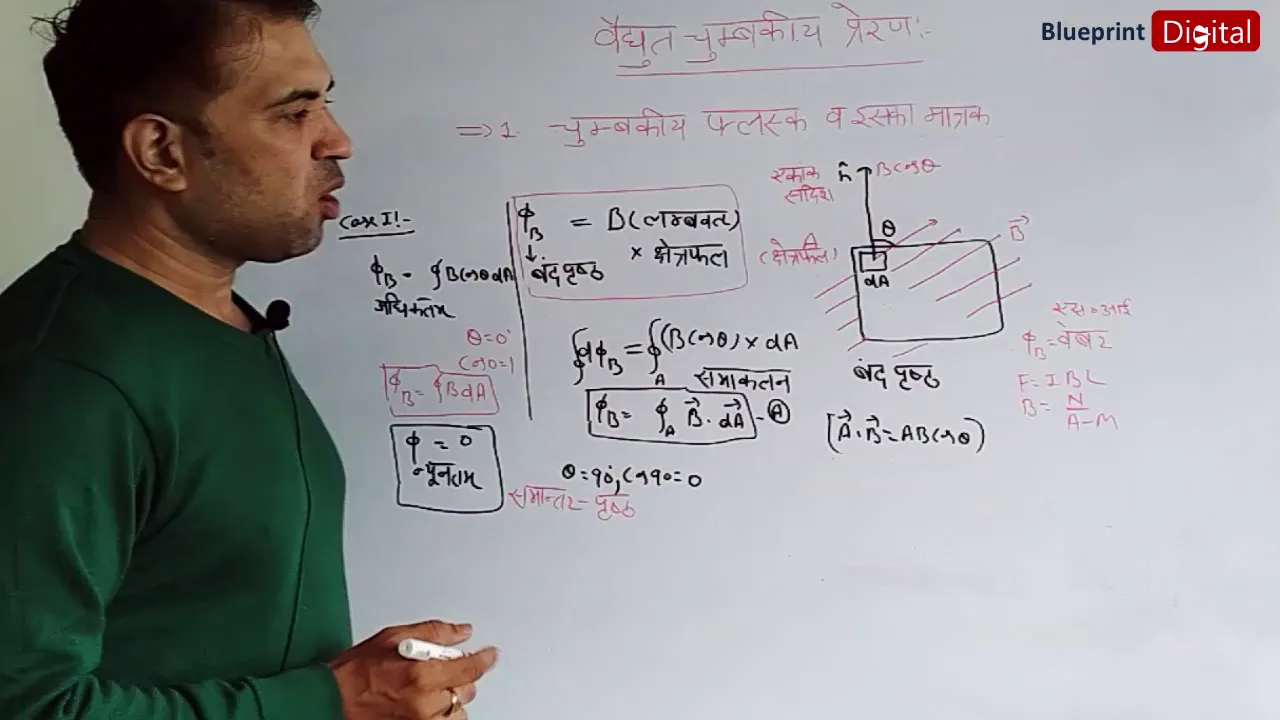 Blueprint Digital
वैद्युत चुम्बकीय प्रेरण:-
⇒ 1. चुम्बकीय फ्लस्क व इसका मात्रक
Case I:-
ϕB = ∮BCosθdA
अधिकतम
θ=0°
Cos0=1
ϕB = ∮BdA
ϕ = 0
न्यूनतम
ϕB = B(लम्बवत)
× क्षेत्रफल
↓
बंद पृष्ठ
∮dϕB = ∮A(BCosθ) × dA
समाकलन
ϕB = ∮A B⃗ . dA⃗ - Ⓐ
θ=90°, Cos90=0
समान्तर - पृष्ठ
एकांक
सदिश
n̂ BCosθ
θ
A
(क्षेत्रफल)
B⃗
dA
बंद पृष्ठ
[A⃗.B⃗ = ABCosθ)
एस॰आई
ϕB = वेबर
F = IBL
B = N
A-M